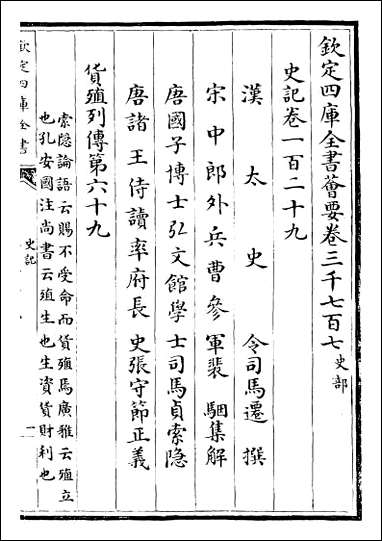 欽定四庫全書薈要卷三千七百七史部
史記卷一百二十九
漢太史令司馬遷撰
宋中郎外兵曹參軍裴駰集解
唐國子博士弘文館學士司馬貞索隐
唐諸王侍讀率府長史張守節正義
貨殖列傳第六十九
索隐論語云賜不受命而貨殖馬廣雅云殖立
也孔安國注尚書云殖生也生資貨財利也
欽定四庫全書
史記
一